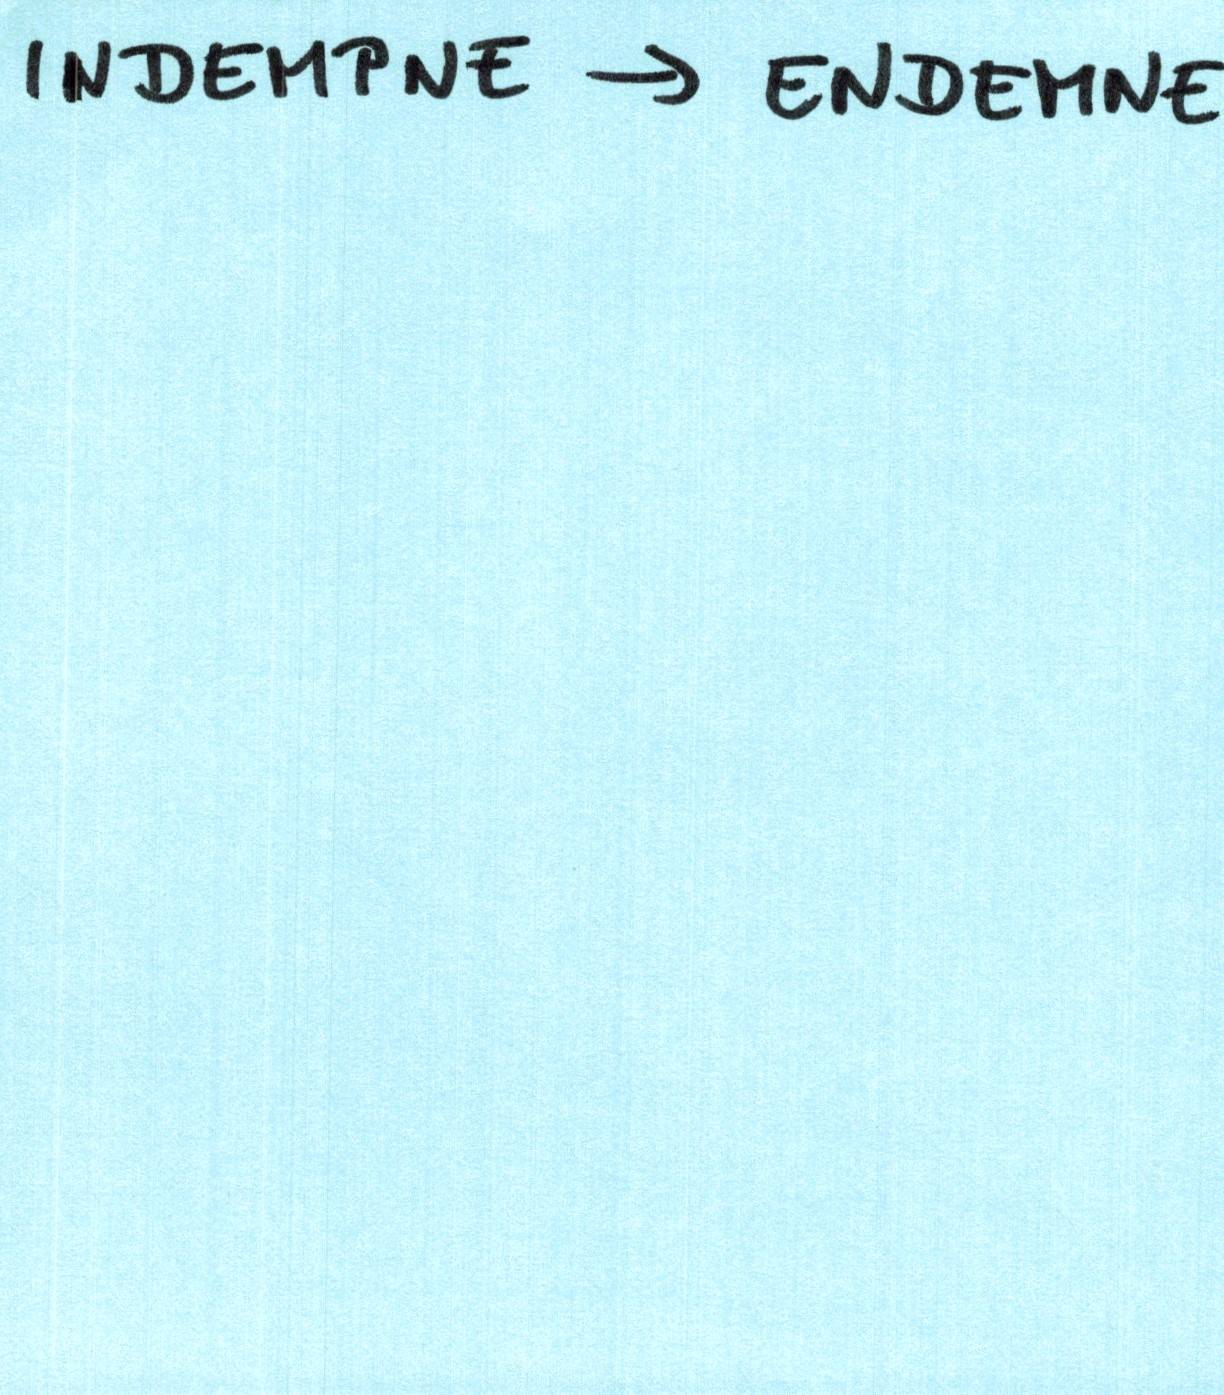 INDEMPNE → ENDEMNE